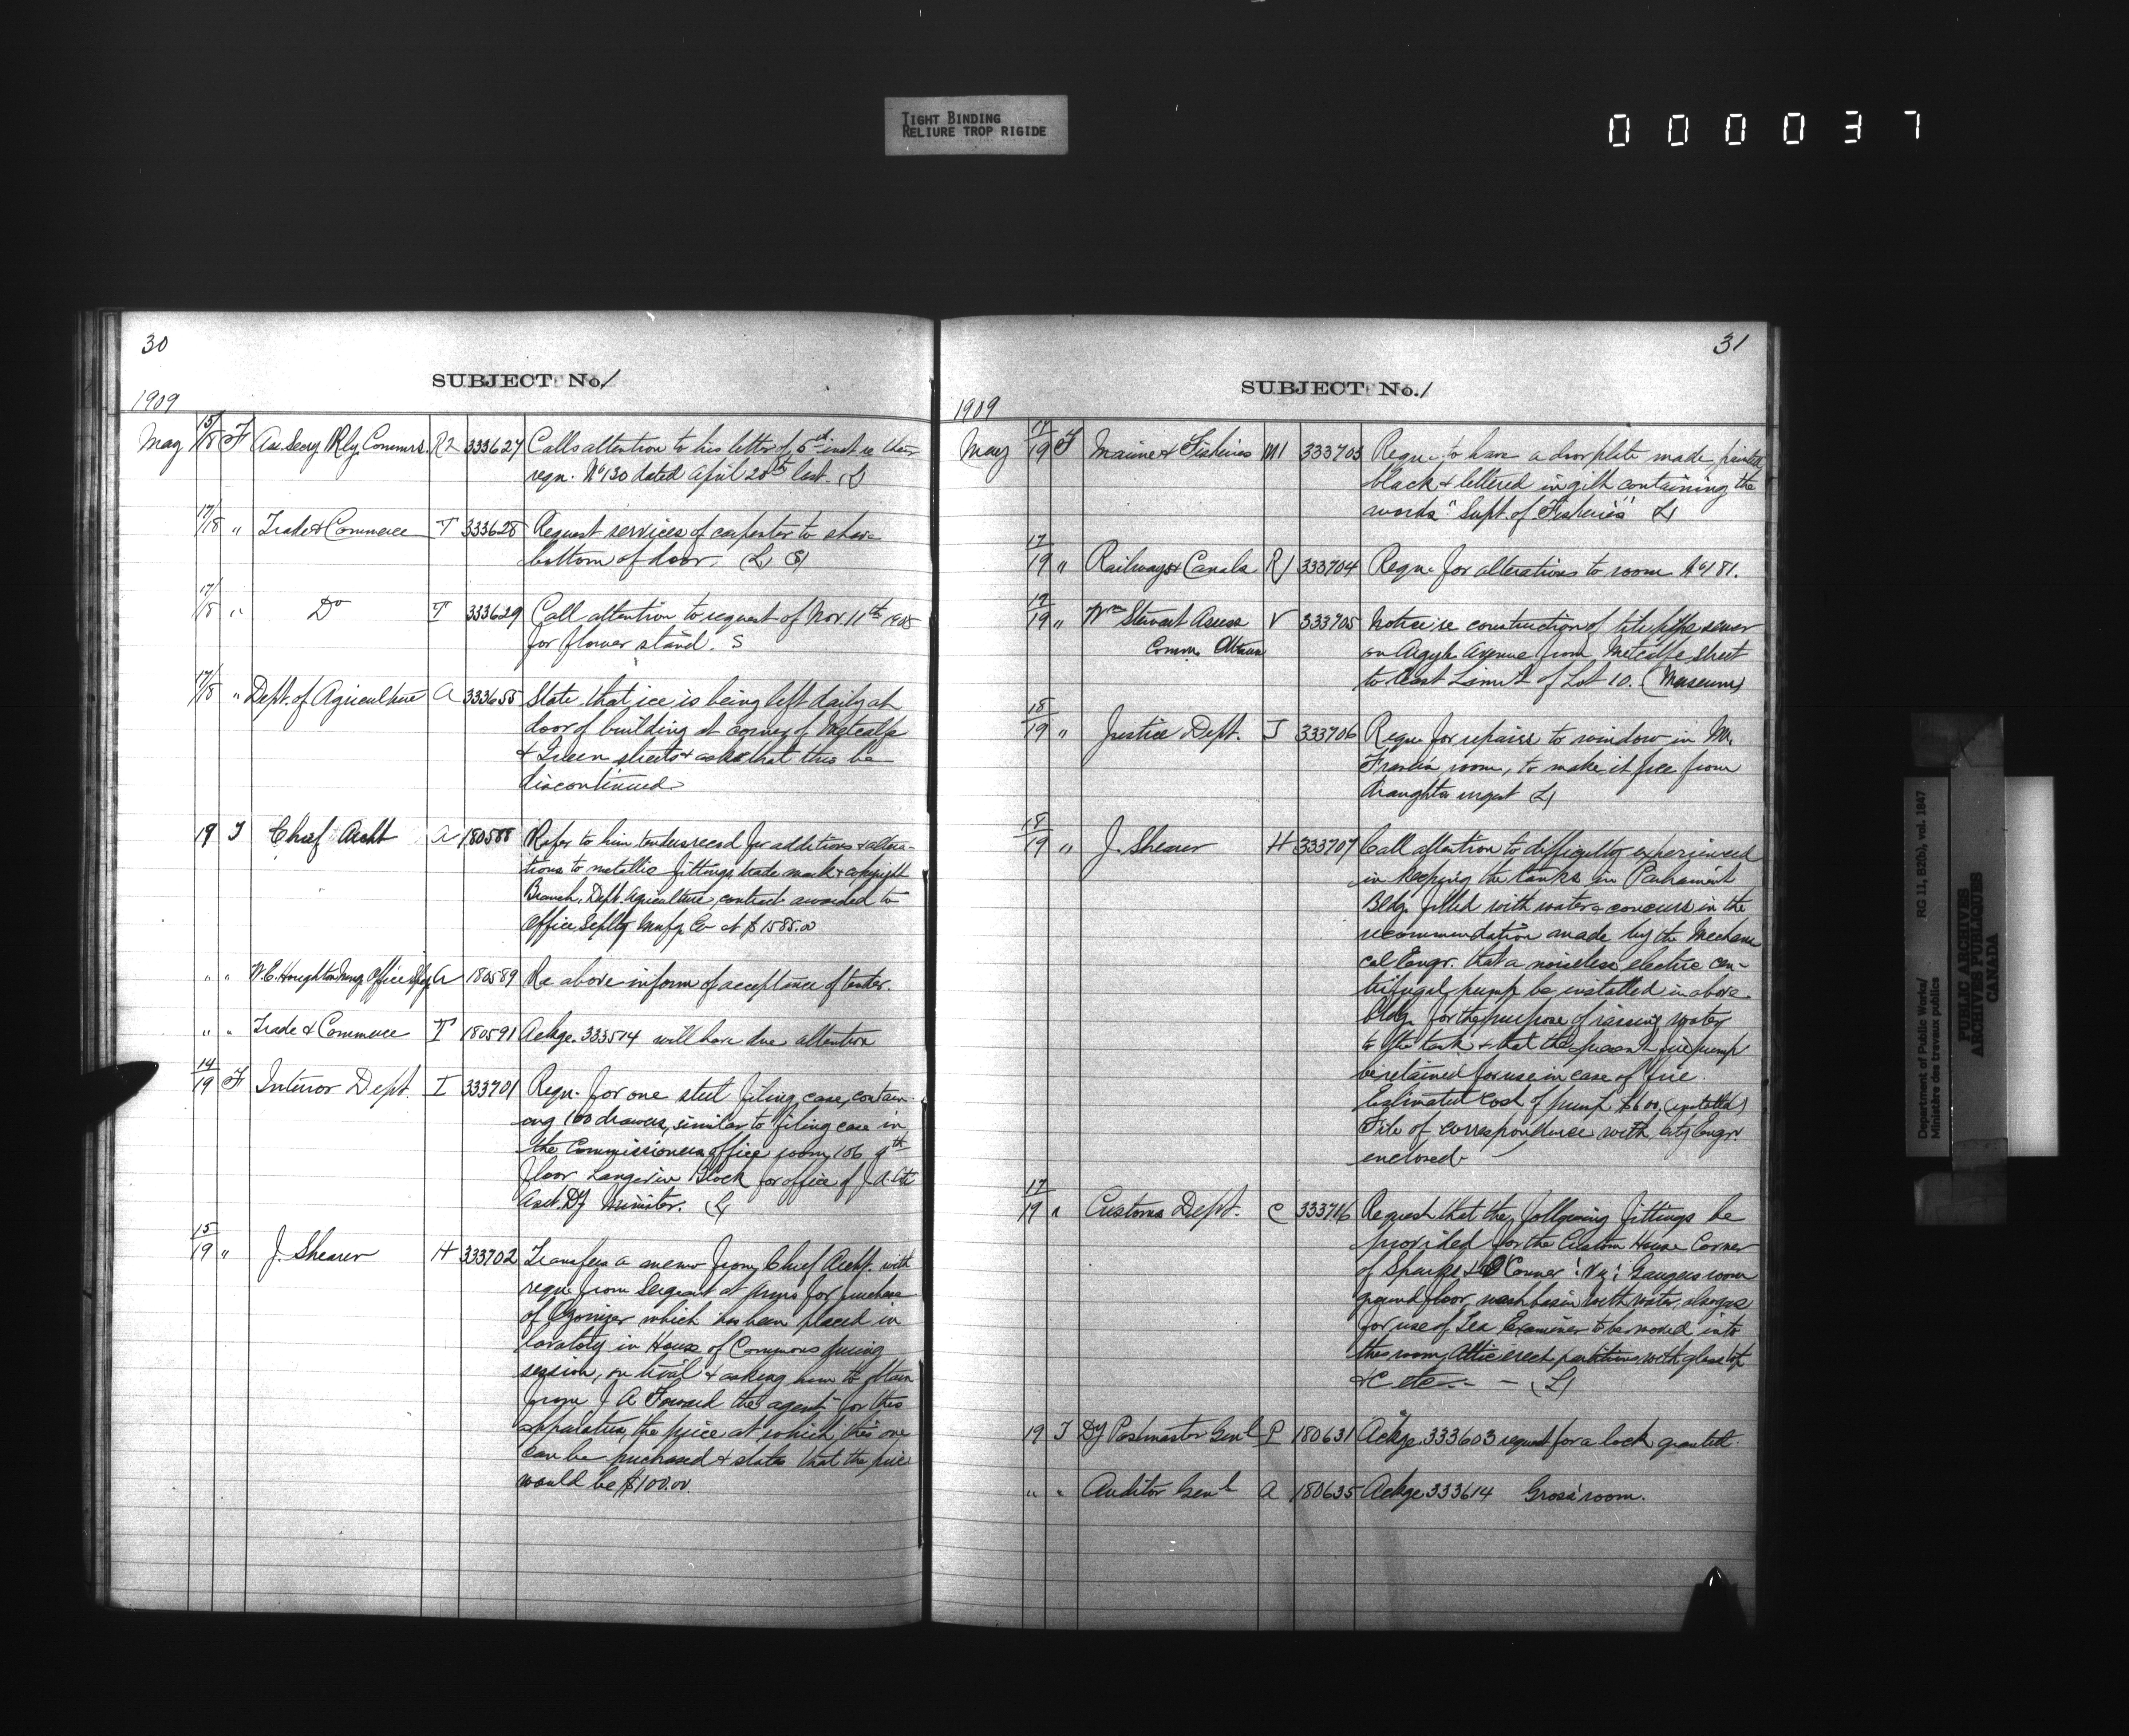 TIGHT BINDING
RELIURE TROP RIGIDE
000037
30
SUBJECT No. 1
1909
May 15/18 F Ass. Secy Rly. Commrs. R2 333627 Calls attention to his letter of 5th inst re their
reqn. No 130 dated April 20th last. (L)
17/18 " Trade & Commerce T 333628 Request services of carpenter to shave
bottom of door. (L) (S)
17/18 " Do T 333629 Call attention to request of Nov 11th 1908
for flower stand. S
17/18 " Dept. of Agriculture A 333655 State that ice is being left daily at
door of building at corner of Metcalfe
& Queen streets & asks that this be
discontinued
19 T Chief Archt A 180588 Refer to him tenders recd for additions & altera-
tions to metallic fittings, trade mark & copyright
Branch, Dept. Agriculture, contract awarded to
Office Splty Manfg Co at $1585.00
" " W.C. Houghton Mang Office Splty A 180589 Re above inform of acceptance of tender.
" " Trade & Commerce T 180591 Ackge. 333514 will have due attention
14/19 F Interior Dept. I 333701 Reqn. for one steel filing case, contain-
ing 100 drawers, similar to filing case in
the Commissioners office room 106 4th
floor Langevin Block for office of J A Côté
Asst. Dy Minister. (L)
15/19 " J. Shearer H 333702 Transfers a memo from Chief Archt. with
reqn. from Sergeant at Arms for purchase
of Ozonizer which has been placed in
lavatory in House of Commons during
session, on trial & asking him to obtain
from J A Forward the agent for this
apparatus, the price at which this one
can be purchased & states that the price
would be $100.00
31
SUBJECT No. 1
1909
May 17/19 F Marine & Fisheries M1 333703 Reqn. to have a door plate made painted
black & lettered in gilt containing the
words "Supt. of Fisheries" (L)
17/19 " Railways & Canals R1 333704 Reqn. for alterations to room No 181.
17/19 " Wm Stewart Assess V 333705 Notice re construction of tile pipe sewer
Comm. Ottawa on Argyle Avenue from Metcalfe street
to East Limit of Lot 10. (Museum)
18/19 " Justice Dept. J 333706 Reqn. for repairs to window in Mr.
room, to make it free from
draughts urgent (L)
18/19 " J. Shearer H 333707 Call attention to difficulty experienced
in keeping the tanks in Parliament
Bldg. filled with water & concurs in the
recommendation made by the Mechani
cal Engr. that a noiseless electric cen-
trifugal pump be installed in above
bldg. for the purpose of raising water
to the tank & that the present fire pump
be retained for use in case of fire.
Estimated cost of pump $600. (installed)
File of correspondence with city Engr
enclosed
17/19 " Customs Dept. C 333716 Request that the following fittings be
provided for the Custom House Corner
of Sparks & O'Connor: Viz: Gaugers room
ground floor, wash basin with water, also gas
for use of Tea Examiner to be moved into
this room, Attic erect partitions with glass top
&c etc - - (L)
19 T Dy Postmaster Genl P 180631 Ackge. 333603 request for a lock granted.
" " Auditor Genl A 180635 Ackge 333614 Gross' room.
Department of Public Works/ RG 11, B2(b), vol. 1847
Ministère des travaux publics
PUBLIC ARCHIVES
ARCHIVES PUBLIQUES
CANADA